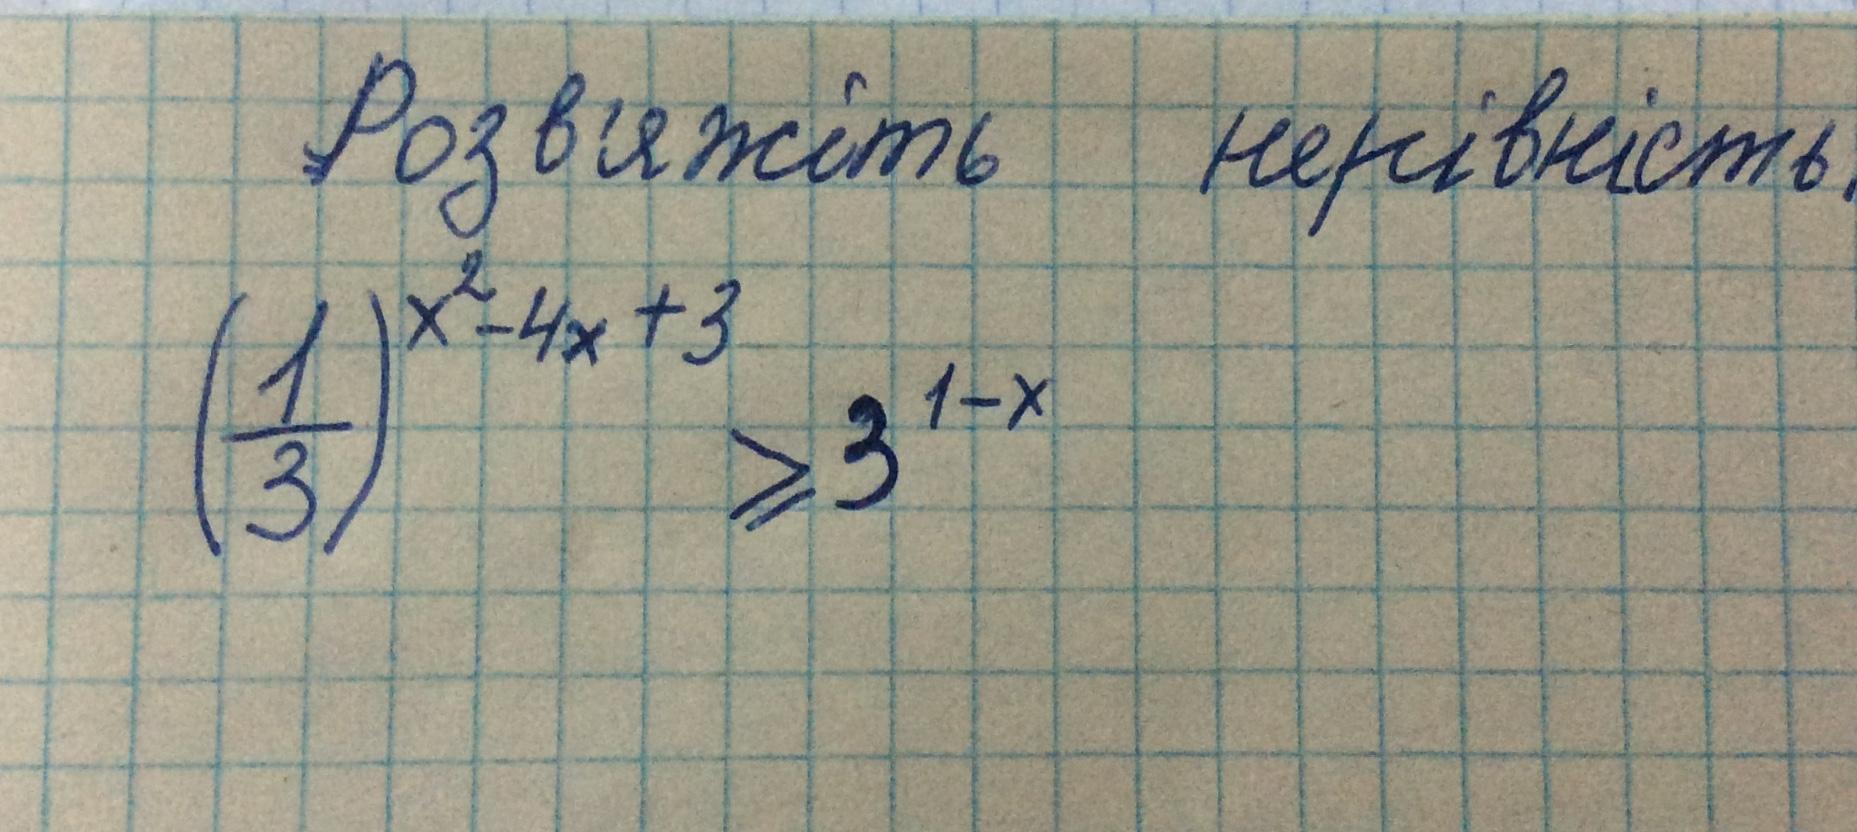 Розв'яжіть нерівність.
(1/3)^(x²-4x+3) ⩾ 3^(1-x)